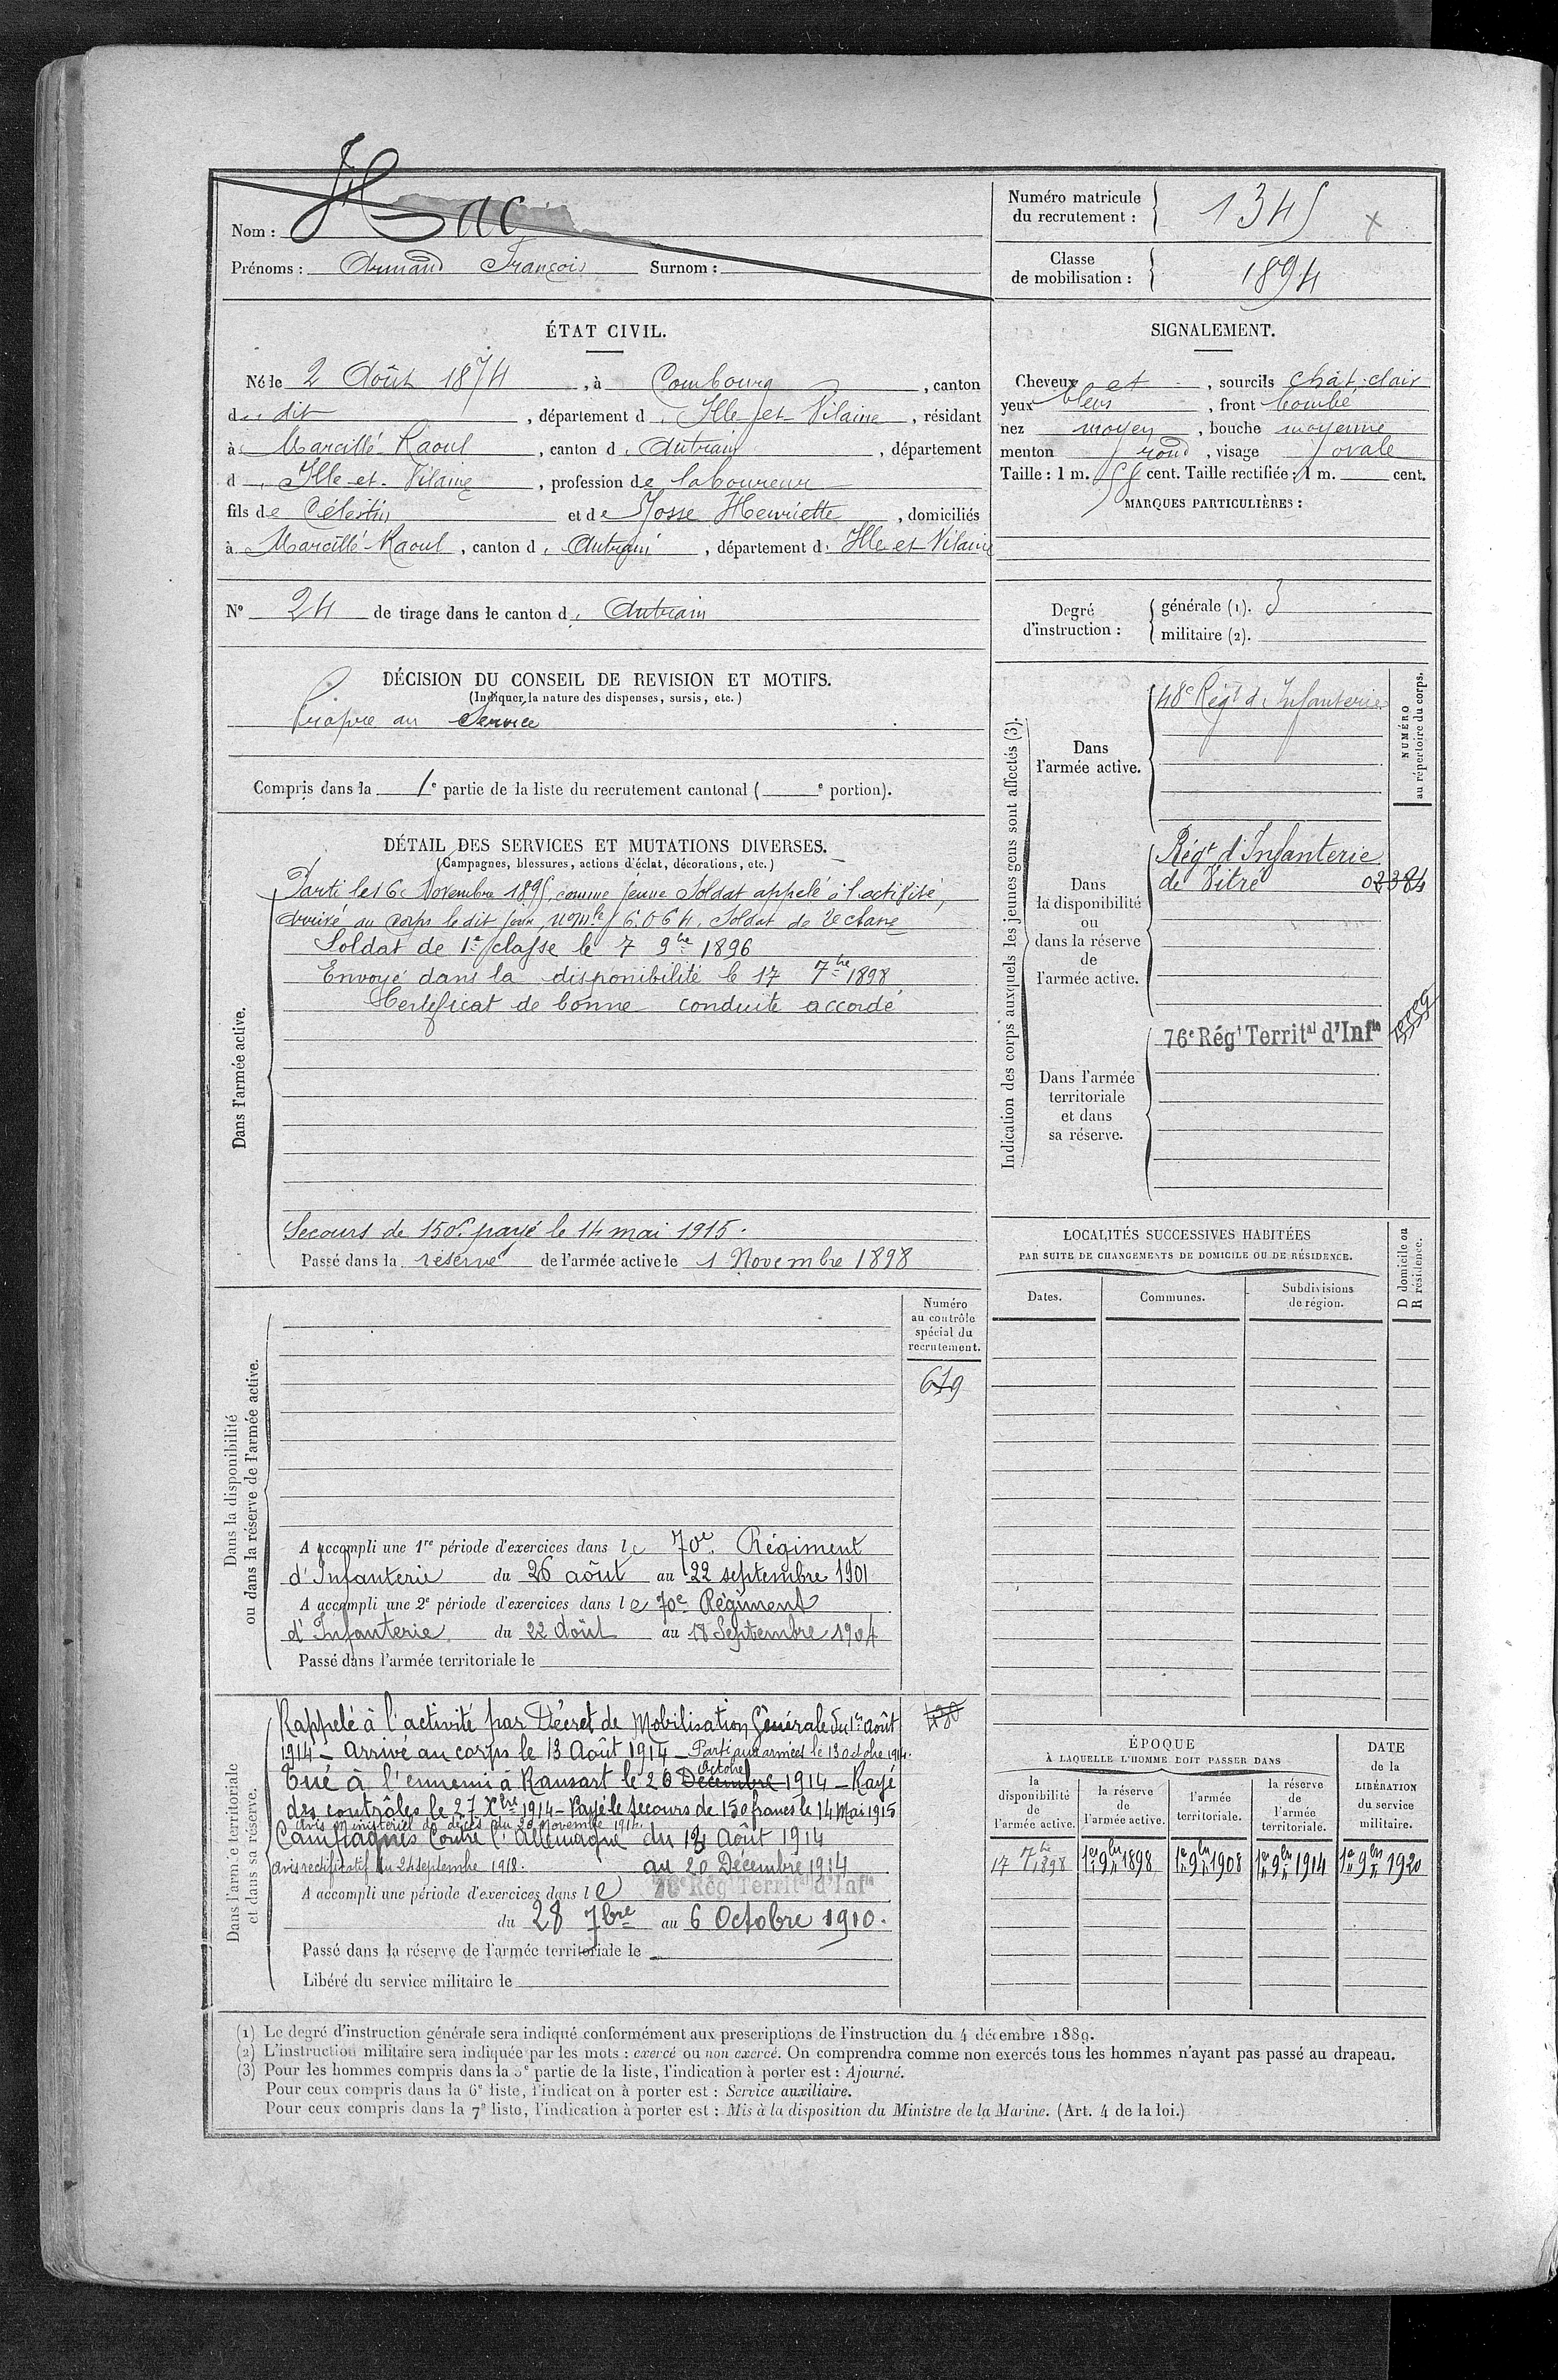 Nom : Hac
Prénoms : Armand François Surnom :
Numéro matricule du recrutement : 1345
Classe de mobilisation : 1894
ÉTAT CIVIL.
Né le 2 Août 1874, à Combourg, canton
du dit, département d'Ille et Vilaine, résidant
à Marcillé-Raoul, canton d'Antrain, département
d'Ille-et-Vilaine, profession de laboureur
fils de Célestin et de Josse Henriette, domiciliés
à Marcillé-Raoul, canton d'Antrain, département d'Ille et Vilaine
N° 24 de tirage dans le canton d'Antrain
SIGNALEMENT.
Cheveux et, sourcils chât. clair
yeux bleus, front bombé
nez moyen, bouche moyenne
menton rond, visage ovale
Taille : 1 m. cent. Taille rectifiée : 1 m. cent.
MARQUES PARTICULIÈRES :
Degré d'instruction :
générale (1). 3
militaire (2).
DÉCISION DU CONSEIL DE REVISION ET MOTIFS.
(Indiquer la nature des dispenses, sursis, etc.)
Propre au service
Compris dans la 1e partie de la liste du recrutement cantonal ( e portion).
DÉTAIL DES SERVICES ET MUTATIONS DIVERSES.
(Campagnes, blessures, actions d'éclat, décorations, etc.)
Dans l'armée active.
Parti le 16 Novembre 1895, comme jeune Soldat appelé à l'activité,
arrivé au corps le dit jour, no mle 6.064, Soldat de 2e classe
Soldat de 1e classe le 7 9bre 1896
Envoyé dans la disponibilité le 17 7bre 1898
Certificat de bonne conduite accordé
Secours de 150f. payé le 14 mai 1915.
Passé dans la réserve de l'armée active le 1 Novembre 1898
Indication des corps auxquels les jeunes gens sont affectés (3).
NUMÉRO au répertoire du corps.
Dans l'armée active.
48e Régt d'Infanterie
Dans la disponibilité ou dans la réserve de l'armée active.
Régt d'Infanterie
de Vitré 02384
Dans l'armée territoriale et dans sa réserve.
76e Régt Territal d'Infie
LOCALITÉS SUCCESSIVES HABITÉES
PAR SUITE DE CHANGEMENTS DE DOMICILE OU DE RÉSIDENCE.
Dates.
Communes.
Subdivisions de région.
D domicile ou R résidence.
Dans la disponibilité ou dans la réserve de l'armée active.
Numéro au contrôle spécial du recrutement.
619
A accompli une 1re période d'exercices dans le 70e Régiment
d'Infanterie du 26 août au 22 septembre 1901
A accompli une 2e période d'exercices dans le 70e Régiment
d'Infanterie du 22 Août au 18 Septembre 1904
Passé dans l'armée territoriale le
Dans l'armée territoriale et dans sa réserve.
Rappelé à l'activité par Décret de Mobilisation Générale du 1er août
1914 – Arrivé au corps le 13 Août 1914 – Parti aux armées le 13 octobre 1914.
Tué à l'ennemi à Ransart le 26 Décembre octobre 1914 – Rayé
des contrôles le 27 Xbre 1914 – Payé le secours de 150 francs le 14 Mai 1915
avis ministériel de décès du 20 novembre 1914.
Campagnes Contre l'Allemagne du 13 Août 1914
avis rectificatif du 24 septembre 1918. au 20 Décembre 1914
A accompli une période d'exercices dans le 76e Régt Territal d'Infie
du 28 7bre au 6 Octobre 1910.
Passé dans la réserve de l'armée territoriale le
Libéré du service militaire le
ÉPOQUE
À LAQUELLE L'HOMME DOIT PASSER DANS
la disponibilité de l'armée active.
la réserve de l'armée active.
l'armée territoriale.
la réserve de l'armée territoriale.
DATE de la LIBÉRATION du service militaire.
17 7bre 1898
1er 9bre 1898
1er 9bre 1908
1er 9bre 1914
1er 9bre 1920
(1) Le degré d'instruction générale sera indiqué conformément aux prescriptions de l'instruction du 4 décembre 1889.
(2) L'instruction militaire sera indiquée par les mots : exercé ou non exercé. On comprendra comme non exercés tous les hommes n'ayant pas passé au drapeau.
(3) Pour les hommes compris dans la 5e partie de la liste, l'indication à porter est : Ajourné.
Pour ceux compris dans la 6e liste, l'indication à porter est : Service auxiliaire.
Pour ceux compris dans la 7e liste, l'indication à porter est : Mis à la disposition du Ministre de la Marine. (Art. 4 de la loi.)